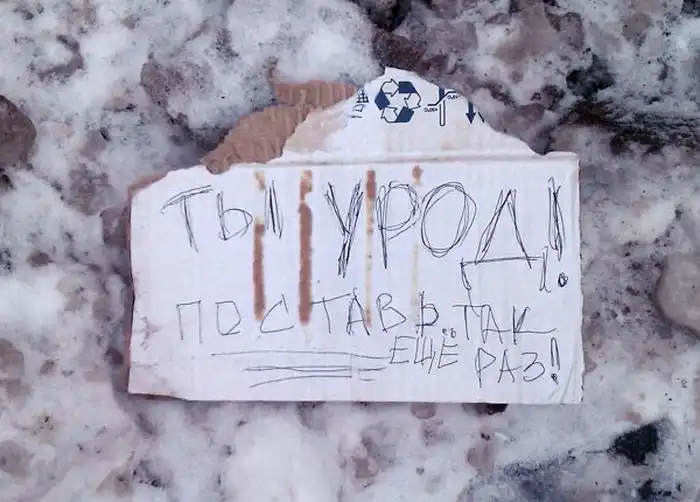 ТЫ УРОД!
ПОСТАВЬ ТАК
ЕЩЁ РАЗ!